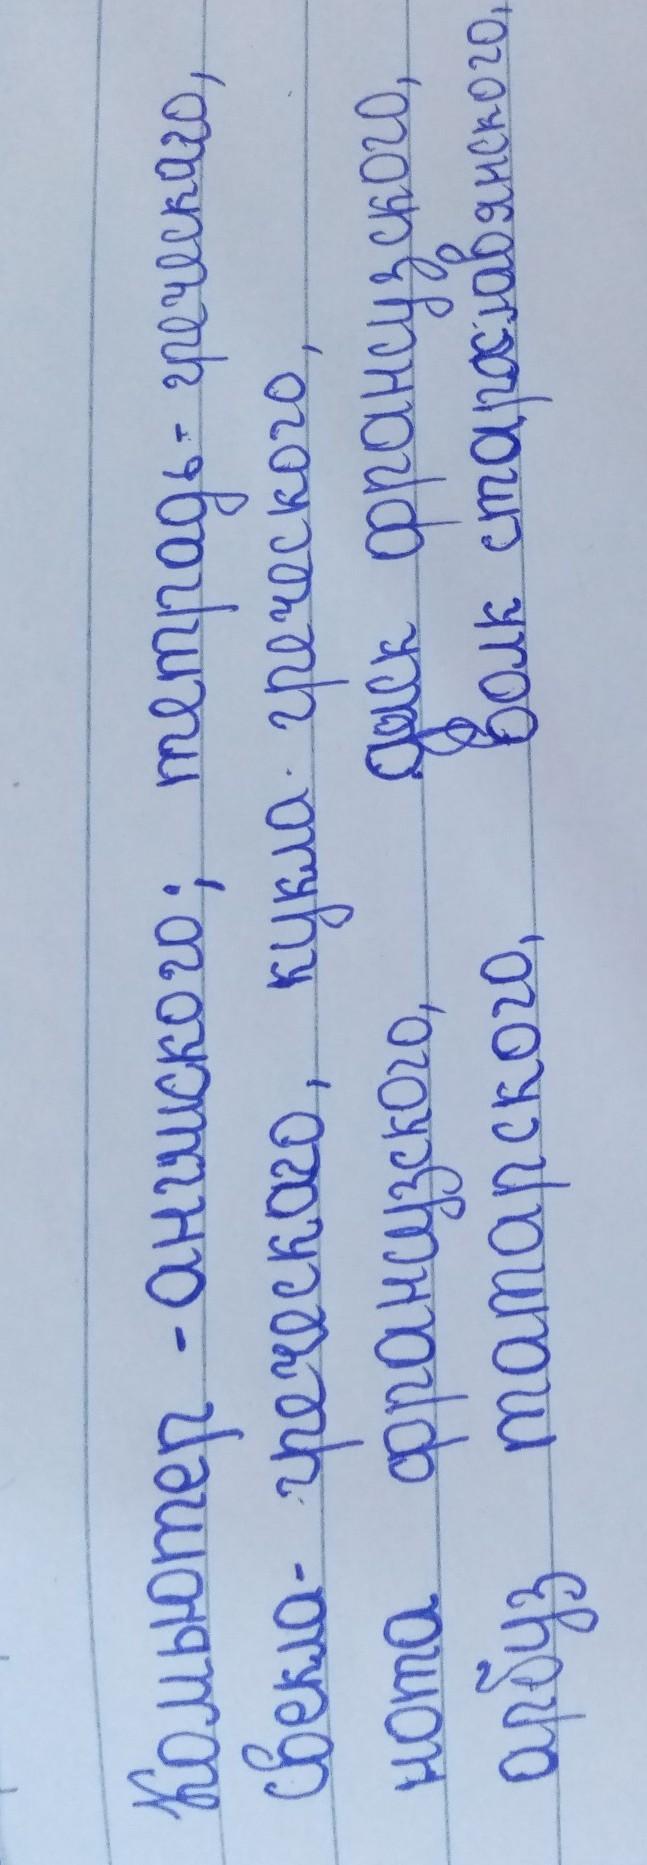 Компьютер - англиского; тетрадь - греческаго,
Свекла - греческаго, кукла греческого,
нота французского, французского,
арбуз татарского, волк старославянского,